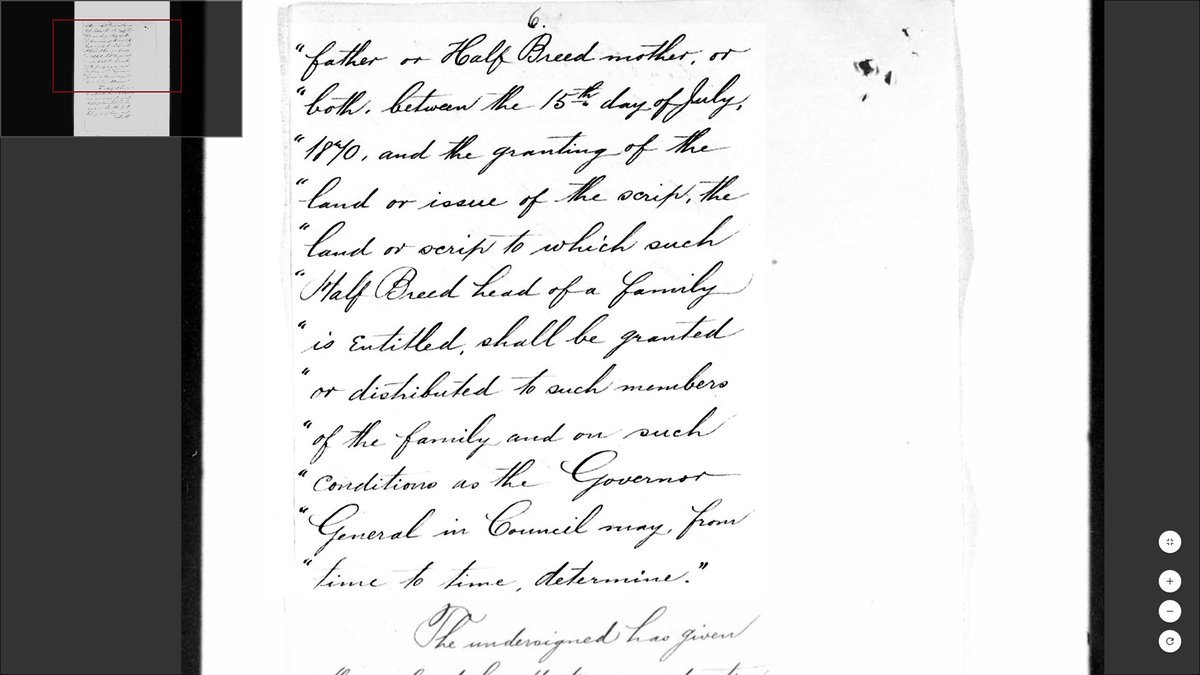 6.
"father or Half Breed mother, or
"both, between the 15th day of July,
"1870, and the granting of the
"land or issue of the scrip, the
"land or scrip to which such
"Half Breed head of a family
"is Entitled, shall be granted
"or distributed to such members
"of the family and on such
"Conditions as the Governor
"General in Council may, from
"time to time, determine."
The undersigned has given